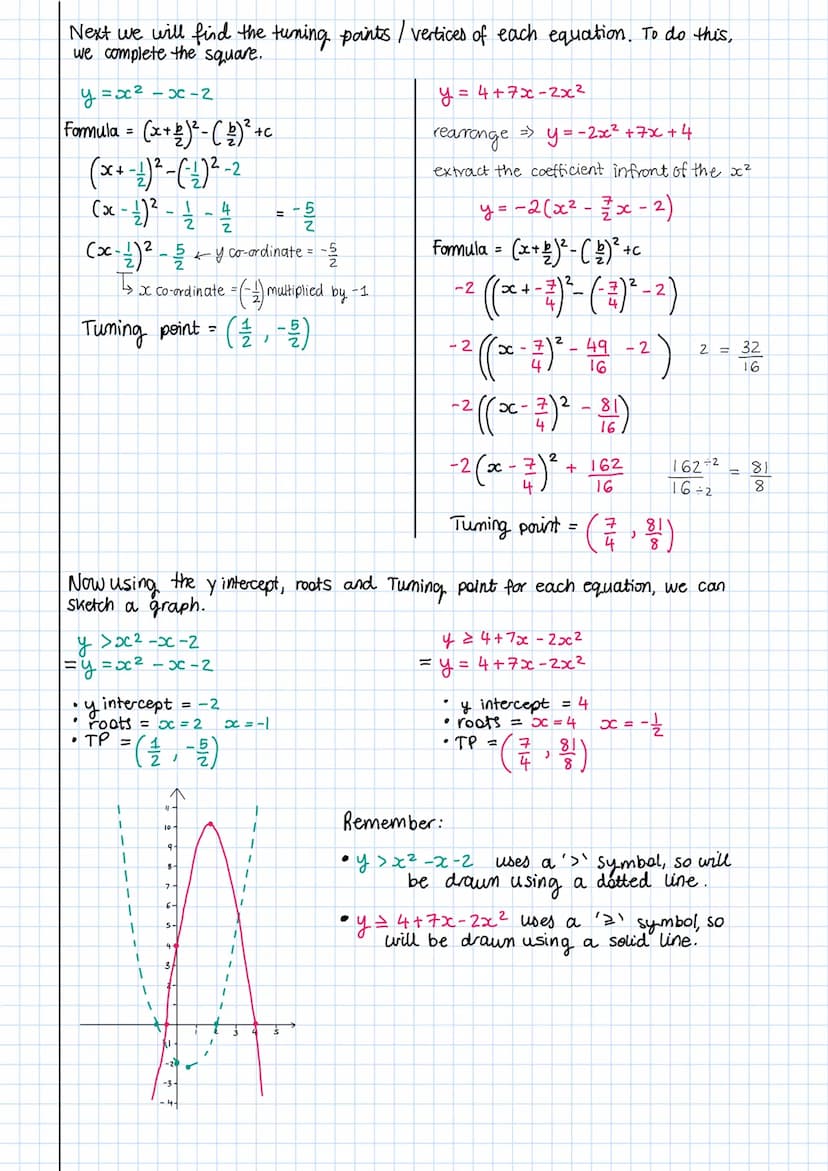 Next we will find the turning points / vertices of each equation. To do this,
we complete the square.
y = x² - x - 2
Formula = (x + b/2)² - (b/2)² + c
(x + -1/2)² - (-1/2)² - 2
(x - 1/2)² - 1/2 - 4/2 = -5/2
(x - 1/2)² - 5/2 ← y co-ordinate = -5/2
↳ x co-ordinate = (-1/2) multiplied by -1
Turning point = (1/2 , -5/2)
y = 4 + 7x - 2x²
rearrange ⇒ y = -2x² + 7x + 4
extract the coefficient infront of the x²
y = -2(x² - 7/2 x - 2)
Formula = (x + b/2)² - (b/2)² + c
-2((x + -7/4)² - (-7/4)² - 2)
-2((x - 7/4)² - 49/16 - 2) 2 = 32/16
-2((x - 7/4)² - 81/16)
-2(x - 7/4)² + 162/16 162÷2/16÷2 = 81/8
Turning point = (7/4 , 81/8)
Now using the y intercept, roots and Turning point for each equation, we can
sketch a graph.
y > x² - x - 2
= y = x² - x - 2
• y intercept = -2
• roots = x = 2 x = -1
• TP = (1/2 , -5/2)
y ≥ 4 + 7x - 2x²
= y = 4 + 7x - 2x²
• y intercept = 4
• roots = x = 4 x = -1/2
• TP = (7/4 , 81/8)
11
10
9
8
7
6
5
4
3
2
1 2 3 4 5
-1
-2
-3
-4
Remember:
• y > x² - x - 2 uses a '>' symbol, so will
be drawn using a dotted line.
• y ≥ 4 + 7x - 2x² uses a '≥' symbol, so
will be drawn using a solid line.